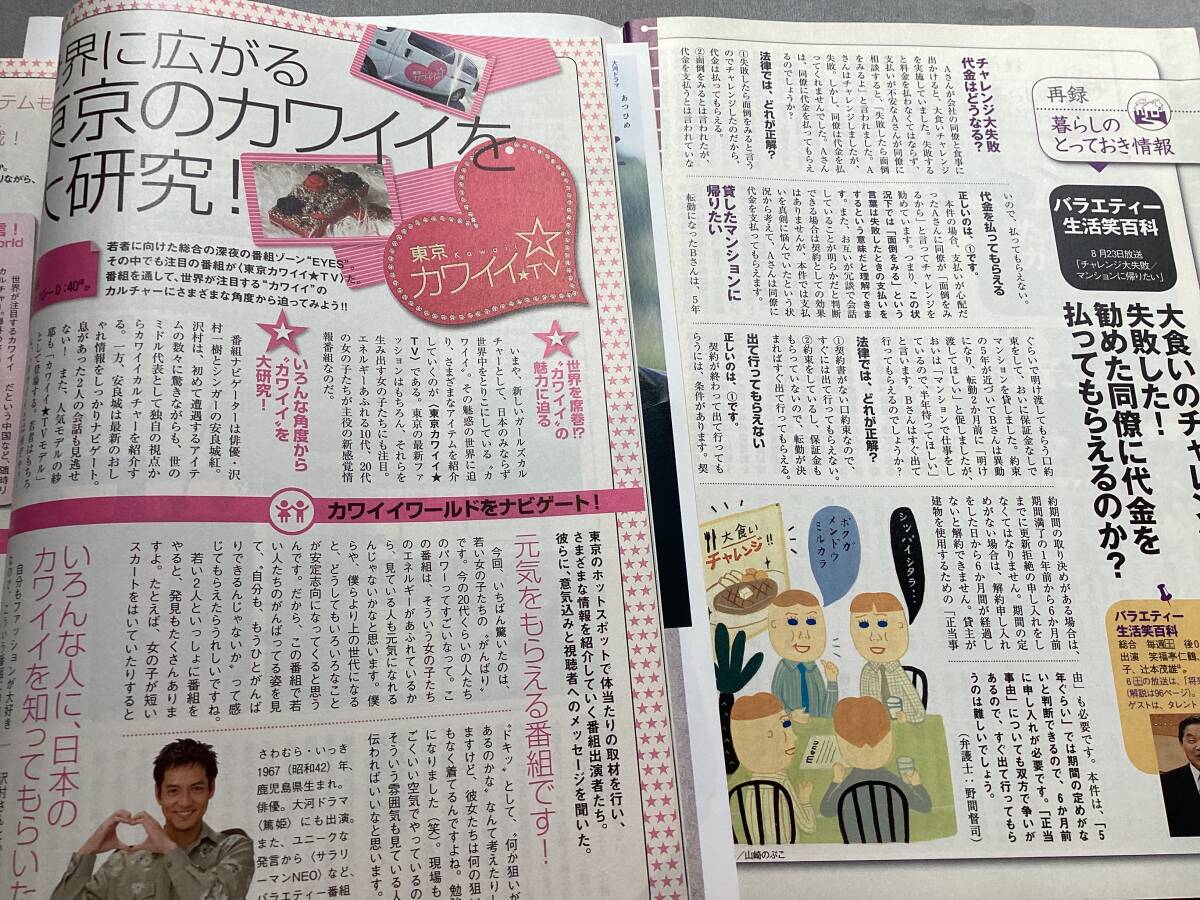 世界に広がる
東京のカワイイを
大研究！
東京
Kawaii
カワイイ★TV
若者に向けた総合の深夜の番組ゾーン“EYES”。
その中でも注目の番組が〈東京カワイイ★TV〉だ。
番組を通して、世界が注目する“カワイイ”の
カルチャーにさまざまな角度から迫ってみよう!!
0:40
“世界を席巻!?
“カワイイ”の
魅力に迫る
いまや、新しいガールズカル
チャーとして、日本のみならず
世界中をとりこにしている“カ
ワイイ”。その魅惑の世界に迫
り、さまざまなアイテムを紹介
していくのが〈東京カワイイ★
TV〉である。東京の最新ファ
ッションはもちろん、それらを
生み出す女の子たちにも注目。
エネルギーあふれる10代、20代
の女の子たちが主役の新感覚情
報番組なのだ。
いろんな角度から
“カワイイ”を
大研究！
番組ナビゲーターは俳優・沢
村一樹とシンガーの安良城紅。
沢村は、初めて遭遇するアイテ
ムの数々に驚きながらも、世の
ミドル代表として独自の視点か
らカワイイカルチャーを紹介す
る。一方、安良城は最新のおし
ゃれ情報をしっかりナビゲート。
息があった2人の会話も見逃せ
ない！　また、人気モデルの紗
耶も「カワイイ★TVモデル」
として登場する。
カワイイワールドをナビゲート！
東京のホットスポットで体当たりの取材を行い、
さまざまな情報を紹介していく番組出演者たち。
彼らに、意気込みと視聴者へのメッセージを聞いた。
元気をもらえる番組です！
今回、いちばん驚いたのは、
若い女の子たちの“がんばり”
です。今の20代くらいの人たち
のパワーってすごいなって。こ
の番組は、そういう女の子たち
のエネルギーがあふれているか
ら、見ている人も元気になれる
んじゃないかなと思います。僕
らや、僕らより上の世代になる
と、どうしてもいろいろなこと
が安定志向になってくると思う
んです。だから、この番組で若
い人たちのがんばってる姿を見
て、“自分も、もうひとがんば
りできるんじゃないか”って感
じてもらえたらうれしいですね。
若い2人といっしょに番組を
やると、発見もたくさんありま
すよ。たとえば、女の子が短い
スカートをはいていたりすると
“ドキッ”として、“何か狙いが
あるのかな”なんて考えたりし
ますけど、彼女たちは何の狙い
もなく着てるんですよね。勉強
になりました（笑）。現場も
ごくいい空気でやっているので
そういう雰囲気も見ている人に
伝わればいいなと思います。
いろんな人に、日本の
カワイイを知ってもらいた
さわむら・いっき
1967（昭和42）年、
鹿児島県生まれ。
俳優。大河ドラマ
〈篤姫〉にも出演。
また、ユニークな
発言から〈サラリ
ーマンNEO〉など、
バラエティー番組
大河ドラマ
あつひめ
再録
暮らしの
とっておき情報
バラエティー
生活笑百科
8月23日放送
「チャレンジ大失敗／
マンションに帰りたい」
大食いのチャレンジ
失敗した！
勧めた同僚に代金を
払ってもらえるのか？
チャレンジ大失敗
代金はどうなる？
Aさんが会社の同僚と食事に
出かけると、大食いチャレンジ
を実施していました。失敗する
と料金を払わなくてはならず、
支払いが不安なAさんが同僚に
相談すると、「失敗したら面倒
をみるよ」と言われました。A
さんはチャレンジしましたが、
失敗。しかし、同僚は代金を払
ってくれませんでした。Aさん
は、同僚に代金を払ってもらえ
るのでしょうか？
法律では、どれが正解？
①失敗したら面倒をみると言う
のでチャレンジしたのだから、
代金は払ってもらえる。
②面倒をみるとは言われたが、
代金を支払うとは言われていな
いので、払ってもらえない。
代金を払ってもらえる
正しいのは、①です。
本件の場合、支払いが心配だ
ったAさんに同僚が「面倒をみ
るから」と言ってチャレンジを
勧めています。つまり、この状
況下では「面倒をみる」という
言葉は失敗したときの支払いを
するという意味だと理解できま
す。また、お互いが冗談で会話
していることが明らかだと判断
できる場合は契約としての効果
はありませんが、本件では支払
いを真剣に悩んでいたという状
況から考えて、Aさんは同僚に
代金を支払ってもらえます。
貸したマンションに
帰りたい
転勤になったBさんは、5年
ぐらいで明け渡してもらう口約
束をして、おいに保証金なしで
マンションを貸しました。約束
の5年が近づいてBさんは異動
となり、転勤2か月前に「明け
渡してほしい」と促しましたが、
おいは「マンションで仕事をし
ているので、半年待ってほしい」
と言います。Bさんはすぐ出て
行ってもらえるのでしょうか？
法律では、どれが正解？
①契約書がない口約束なので、
すぐには出て行ってもらえない。
②約束をしているし、保証金も
もらっていないので、転勤が決
まればすぐ出て行ってもらえる。
出て行ってもらえない
正しいのは、①です。
契約が終わって出て行っても
らうには、条件があります。契
約期間の取り決めがある場合は、
期間満了の1年前から6か月前
までに更新拒絶の申し入れをし
なくてはなりません。期間の定
めがない場合は、解約申し入れ
をした日から6か月間が経過し
ないと解約できません。貸主が
建物を使用するための「正当事
由」も必要です。本件は、「5
年ぐらい」では期間の定めがな
いと判断できるので、6か月前
に申し入れが必要です。「正当
事由」についても双方で争いが
あるので、すぐ出て行ってもら
うのは難しいでしょう。
（弁護士：野間督司）
大食い
チャレンジ!!
ボクガ
メンドウ
ミルカラ
シッパイシタラ…
menu
／山崎のぶこ
バラエティー
生活笑百科
総合　毎週土　後0
出演　笑福亭仁鶴
子、辻本茂雄。
6土の放送は、「将
（解説は96ページ）。
ゲストは、タレント